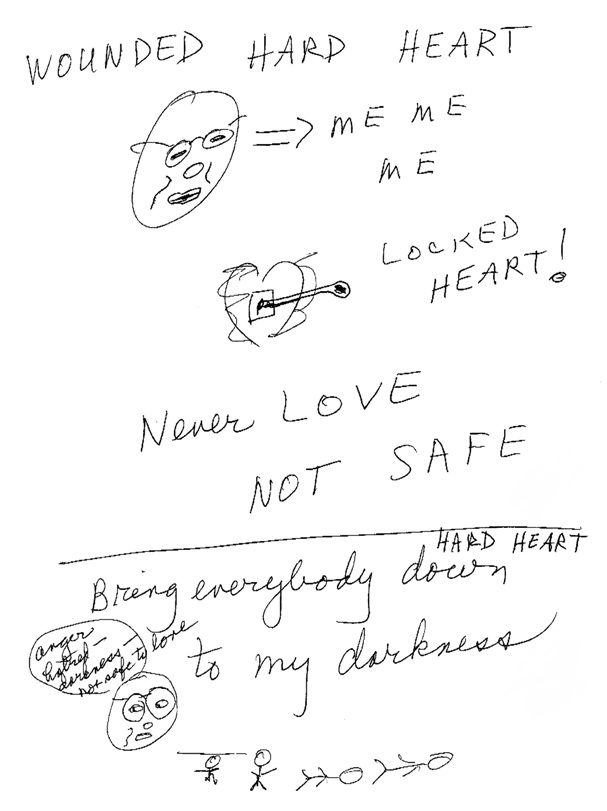 WOUNDED HARD HEART
=> ME ME
ME
LOCKED
HEART!
Never LOVE
NOT SAFE
HARD HEART
Bring everybody down
to my darkness
anger
hatred –
darkness –
not safe to love